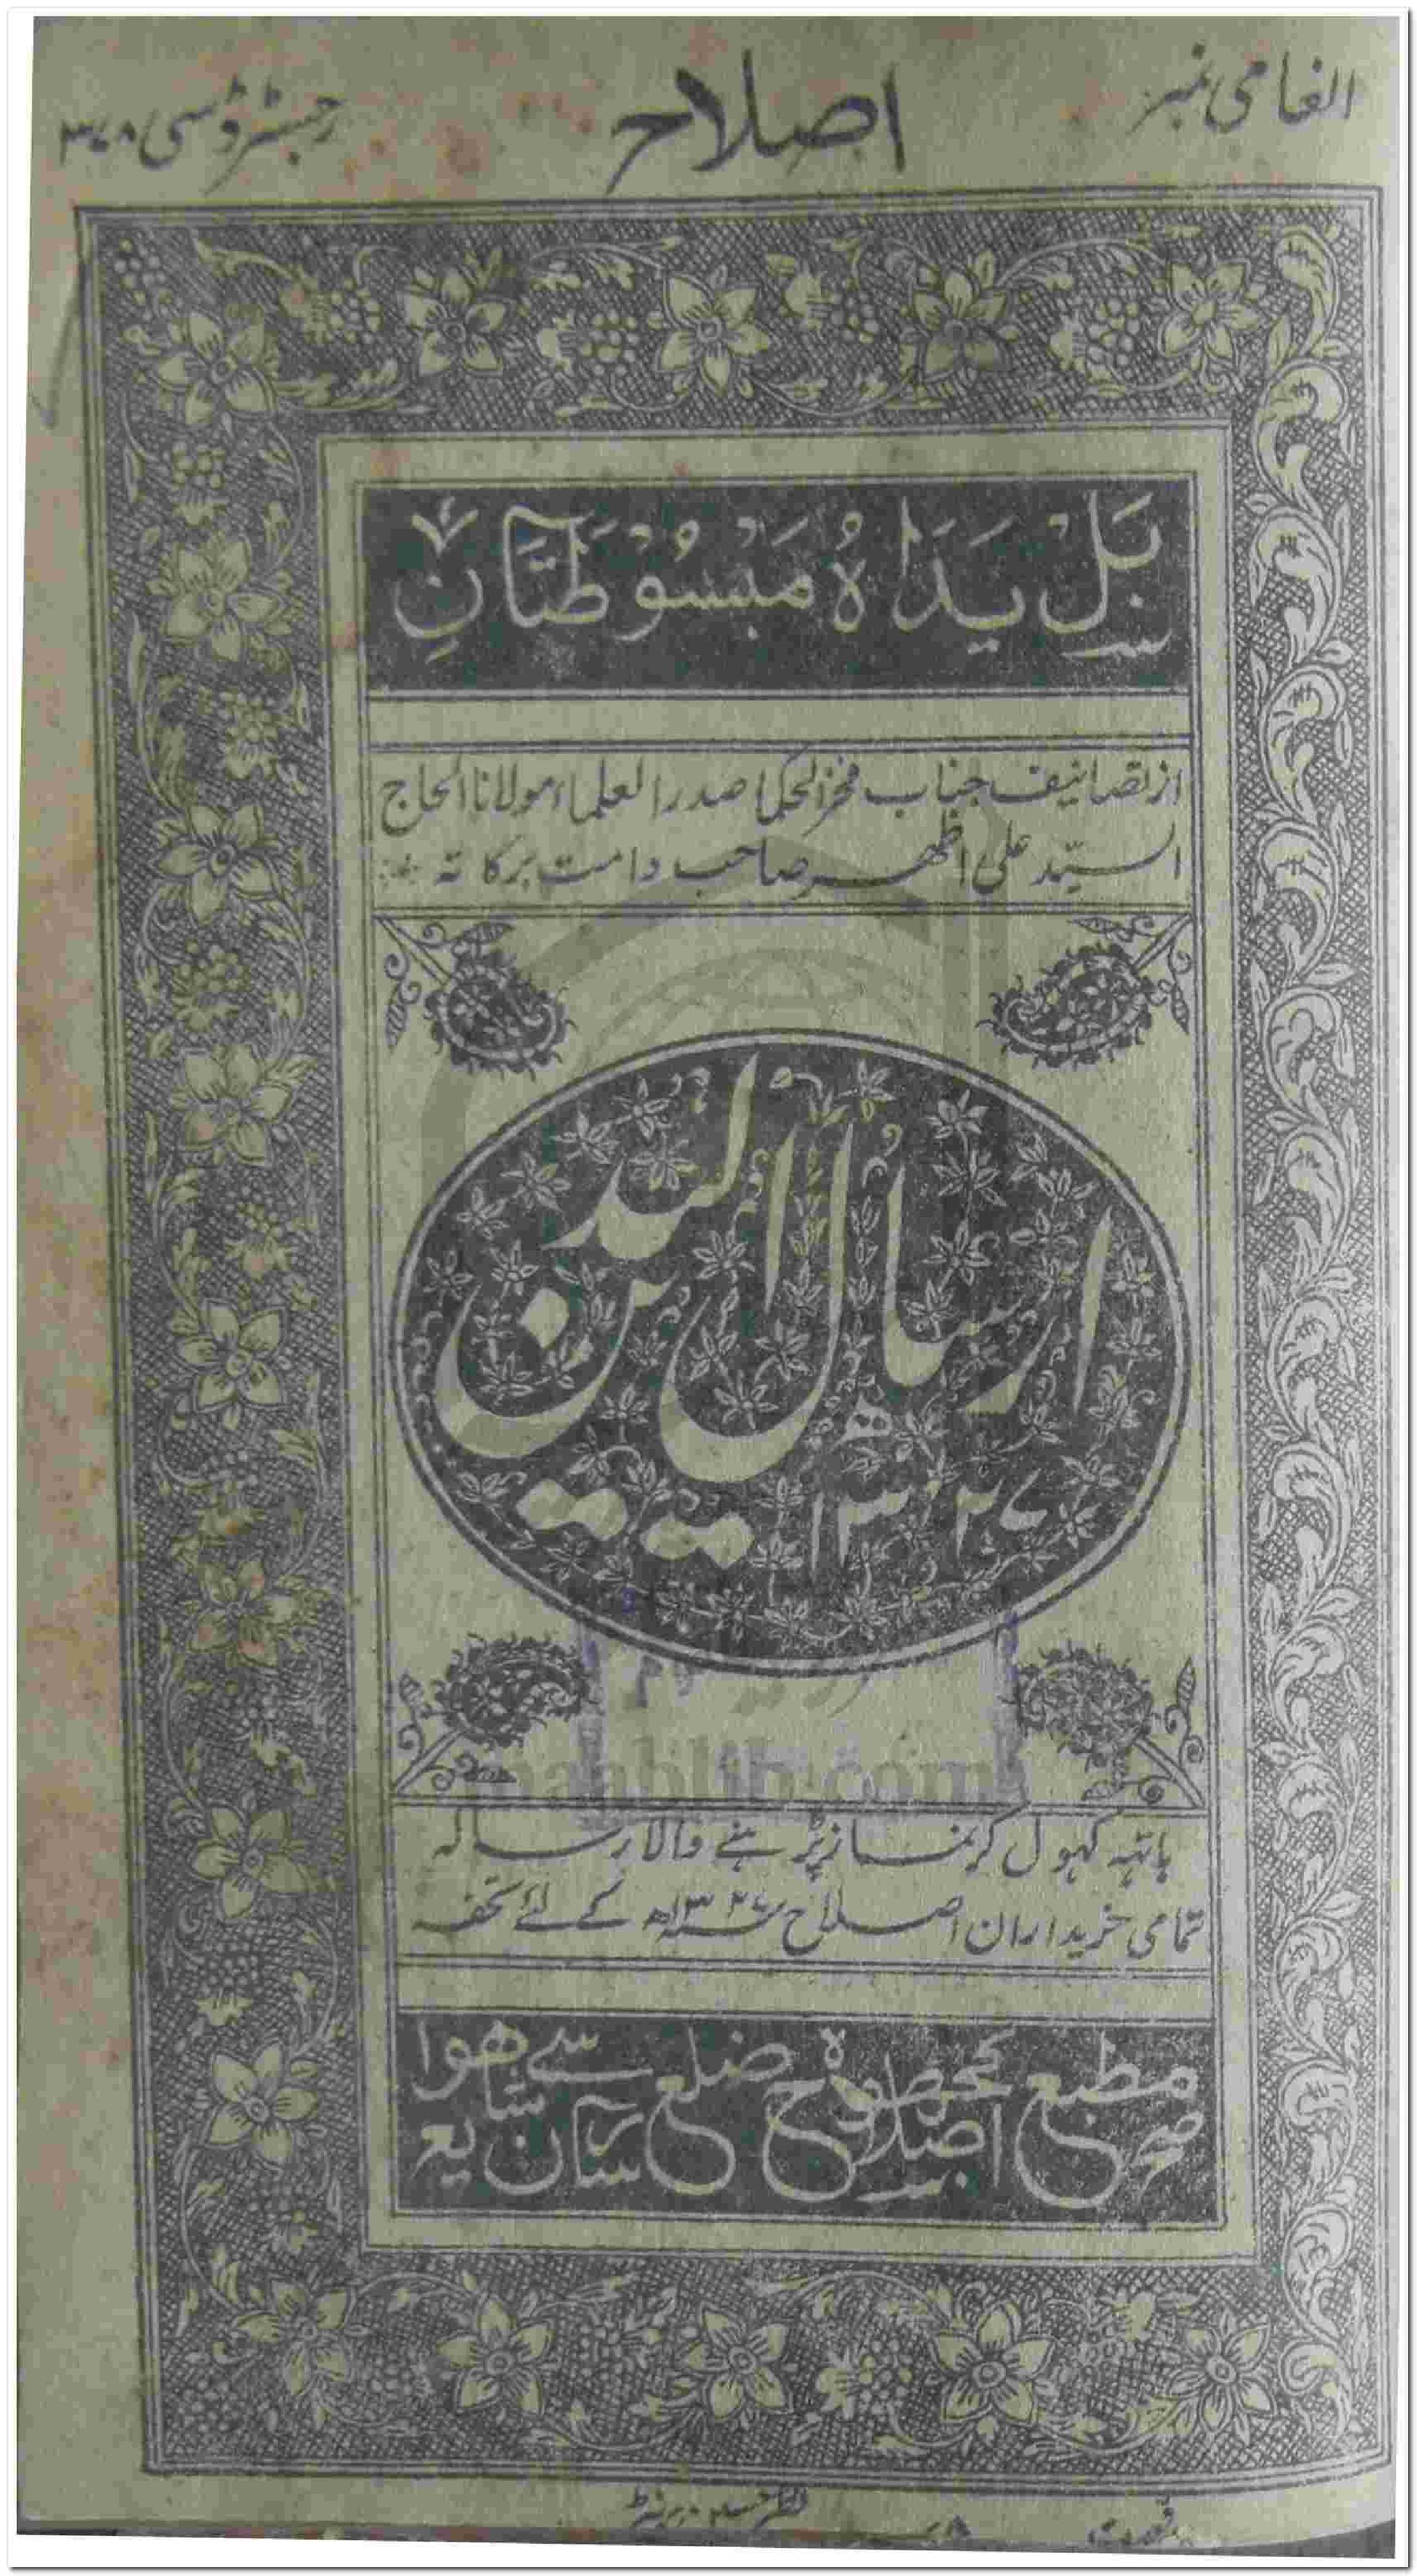 انعامی نمبر
اصلاح
رجسٹرڈ سی ۳۷۸
بَلْ يَدَاهُ مَبْسُوْطَتَانِ
از تصانیف جناب فخر الحکما صدر العلماء مولانا الحاج
السیّد علی اظہر صاحب دامت برکاتہ
ارسال الیدین
۱۳۲۷ھ
maablib.com
ہاتہہ کہول کر نماز پڑہنے والا رسالہ
تمامی خریداران اصلاح ۱۳۲۷ھ کے لئے تحفہ
مطبع اصلاح کھجوہ ضلع سارن سے شایع ہوا
قیمت